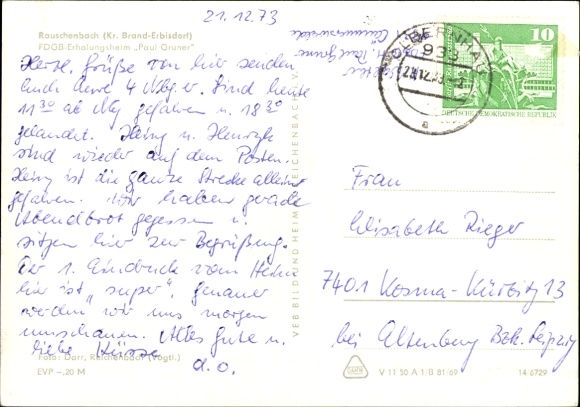 21.12.73
Rauschenbach (Kr. Brand-Erbisdorf)
FDGB-Erholungsheim „Paul Gruner"
Herzl. Grüße von hier senden
Euch Eure 4 Mbg.er. Sind heute
11³⁰ ab Mbg gefahren u. 18³⁰
gelandet. Heinz u.
sind wieder auf dem Posten.
Heinz ist die ganze Strecke alleine
gefahren. Wir haben gerade
Abendbrot gegessen u.
sitzen hier zur Begrüßung.
Der 1. Eindruck vom Heim
hier ist „super", genauer
werden wir uns morgen
umschauen. Alles Gute u.
liebe Küsse
d. o.
Foto: Darr, Reichenbach (Vogtl.)
EVP –,20 M
VEB BILD UND HEIM REICHENBACH
OLBERNHAU
933
a
10
DEUTSCHE DEMOKRATISCHE REPUBLIK
Frau
Elisabeth Rieger
7401 Kosma-Kürbitz 13
bei Altenburg Bzk. Leipzig
V 11 50 A 1/B 81/69
14 6729